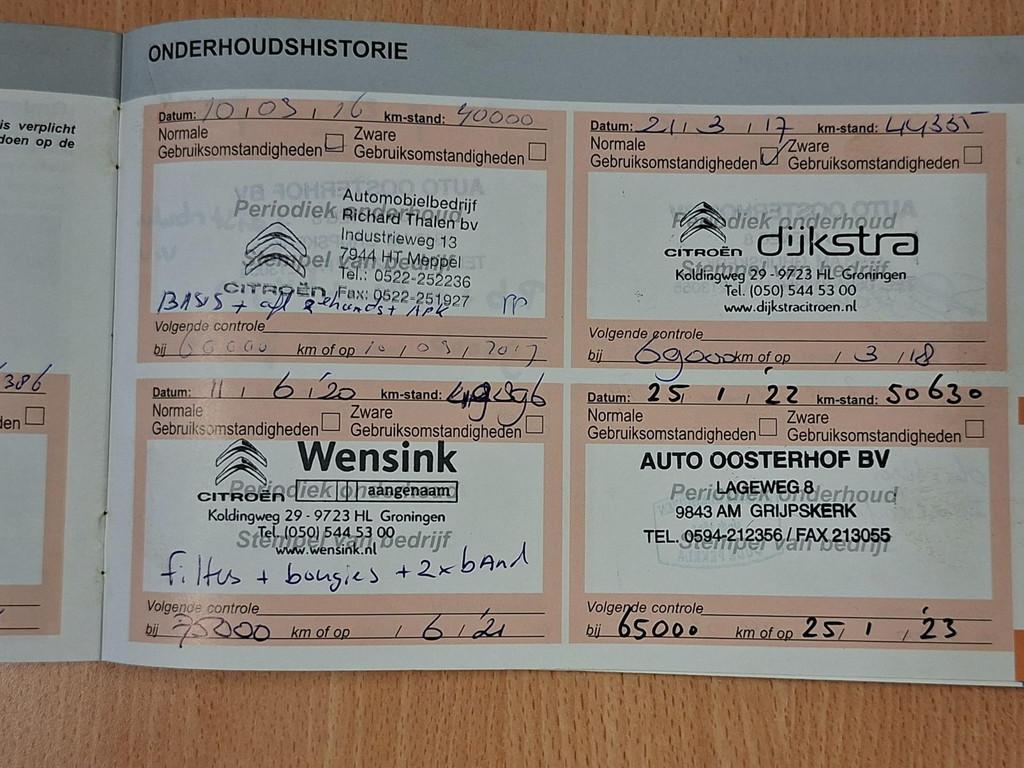 ONDERHOUDSHISTORIE
is verplicht
doen op de
386
den
Datum: 10 / 03 / 16 km-stand: 40000
Normale Gebruiksomstandigheden Zware Gebruiksomstandigheden
Periodiek onderhoud
Stempel van bedrijf
Automobielbedrijf
Richard Thalen bv
Industrieweg 13
7944 HT Meppel
Tel.: 0522-252236
CITROËN Fax: 0522-251927
BASIS + APK
Volgende controle
bij 60000 km of op 10 / 03 / 2017
Datum: 21 / 3 / 17 km-stand: 44335
Normale Gebruiksomstandigheden Zware Gebruiksomstandigheden
Periodiek onderhoud
CITROËN dijkstra
Stempel van bedrijf
Koldingweg 29 - 9723 HL Groningen
Tel. (050) 544 53 00
www.dijkstracitroen.nl
Volgende controle
bij 69000 km of op / 3 / 18
Datum: 11 / 6 / '20 km-stand:
Normale Gebruiksomstandigheden Zware Gebruiksomstandigheden
Wensink
CITROËN aangenaam
Periodiek onderhoud
Koldingweg 29 - 9723 HL Groningen
Tel. (050) 544 53 00
Stempel van bedrijf
www.wensink.nl
filters + bougies + 2x band
Volgende controle
bij 75000 km of op / 6 / '21
Datum: 25 / 1 / '22 km-stand: 50630
Normale Gebruiksomstandigheden Zware Gebruiksomstandigheden
AUTO OOSTERHOF BV
LAGEWEG 8
Periodiek onderhoud
9843 AM GRIJPSKERK
TEL. 0594-212356 / FAX 213055
Stempel van bedrijf
Volgende controle
bij 65000 km of op 25 / 1 / '23